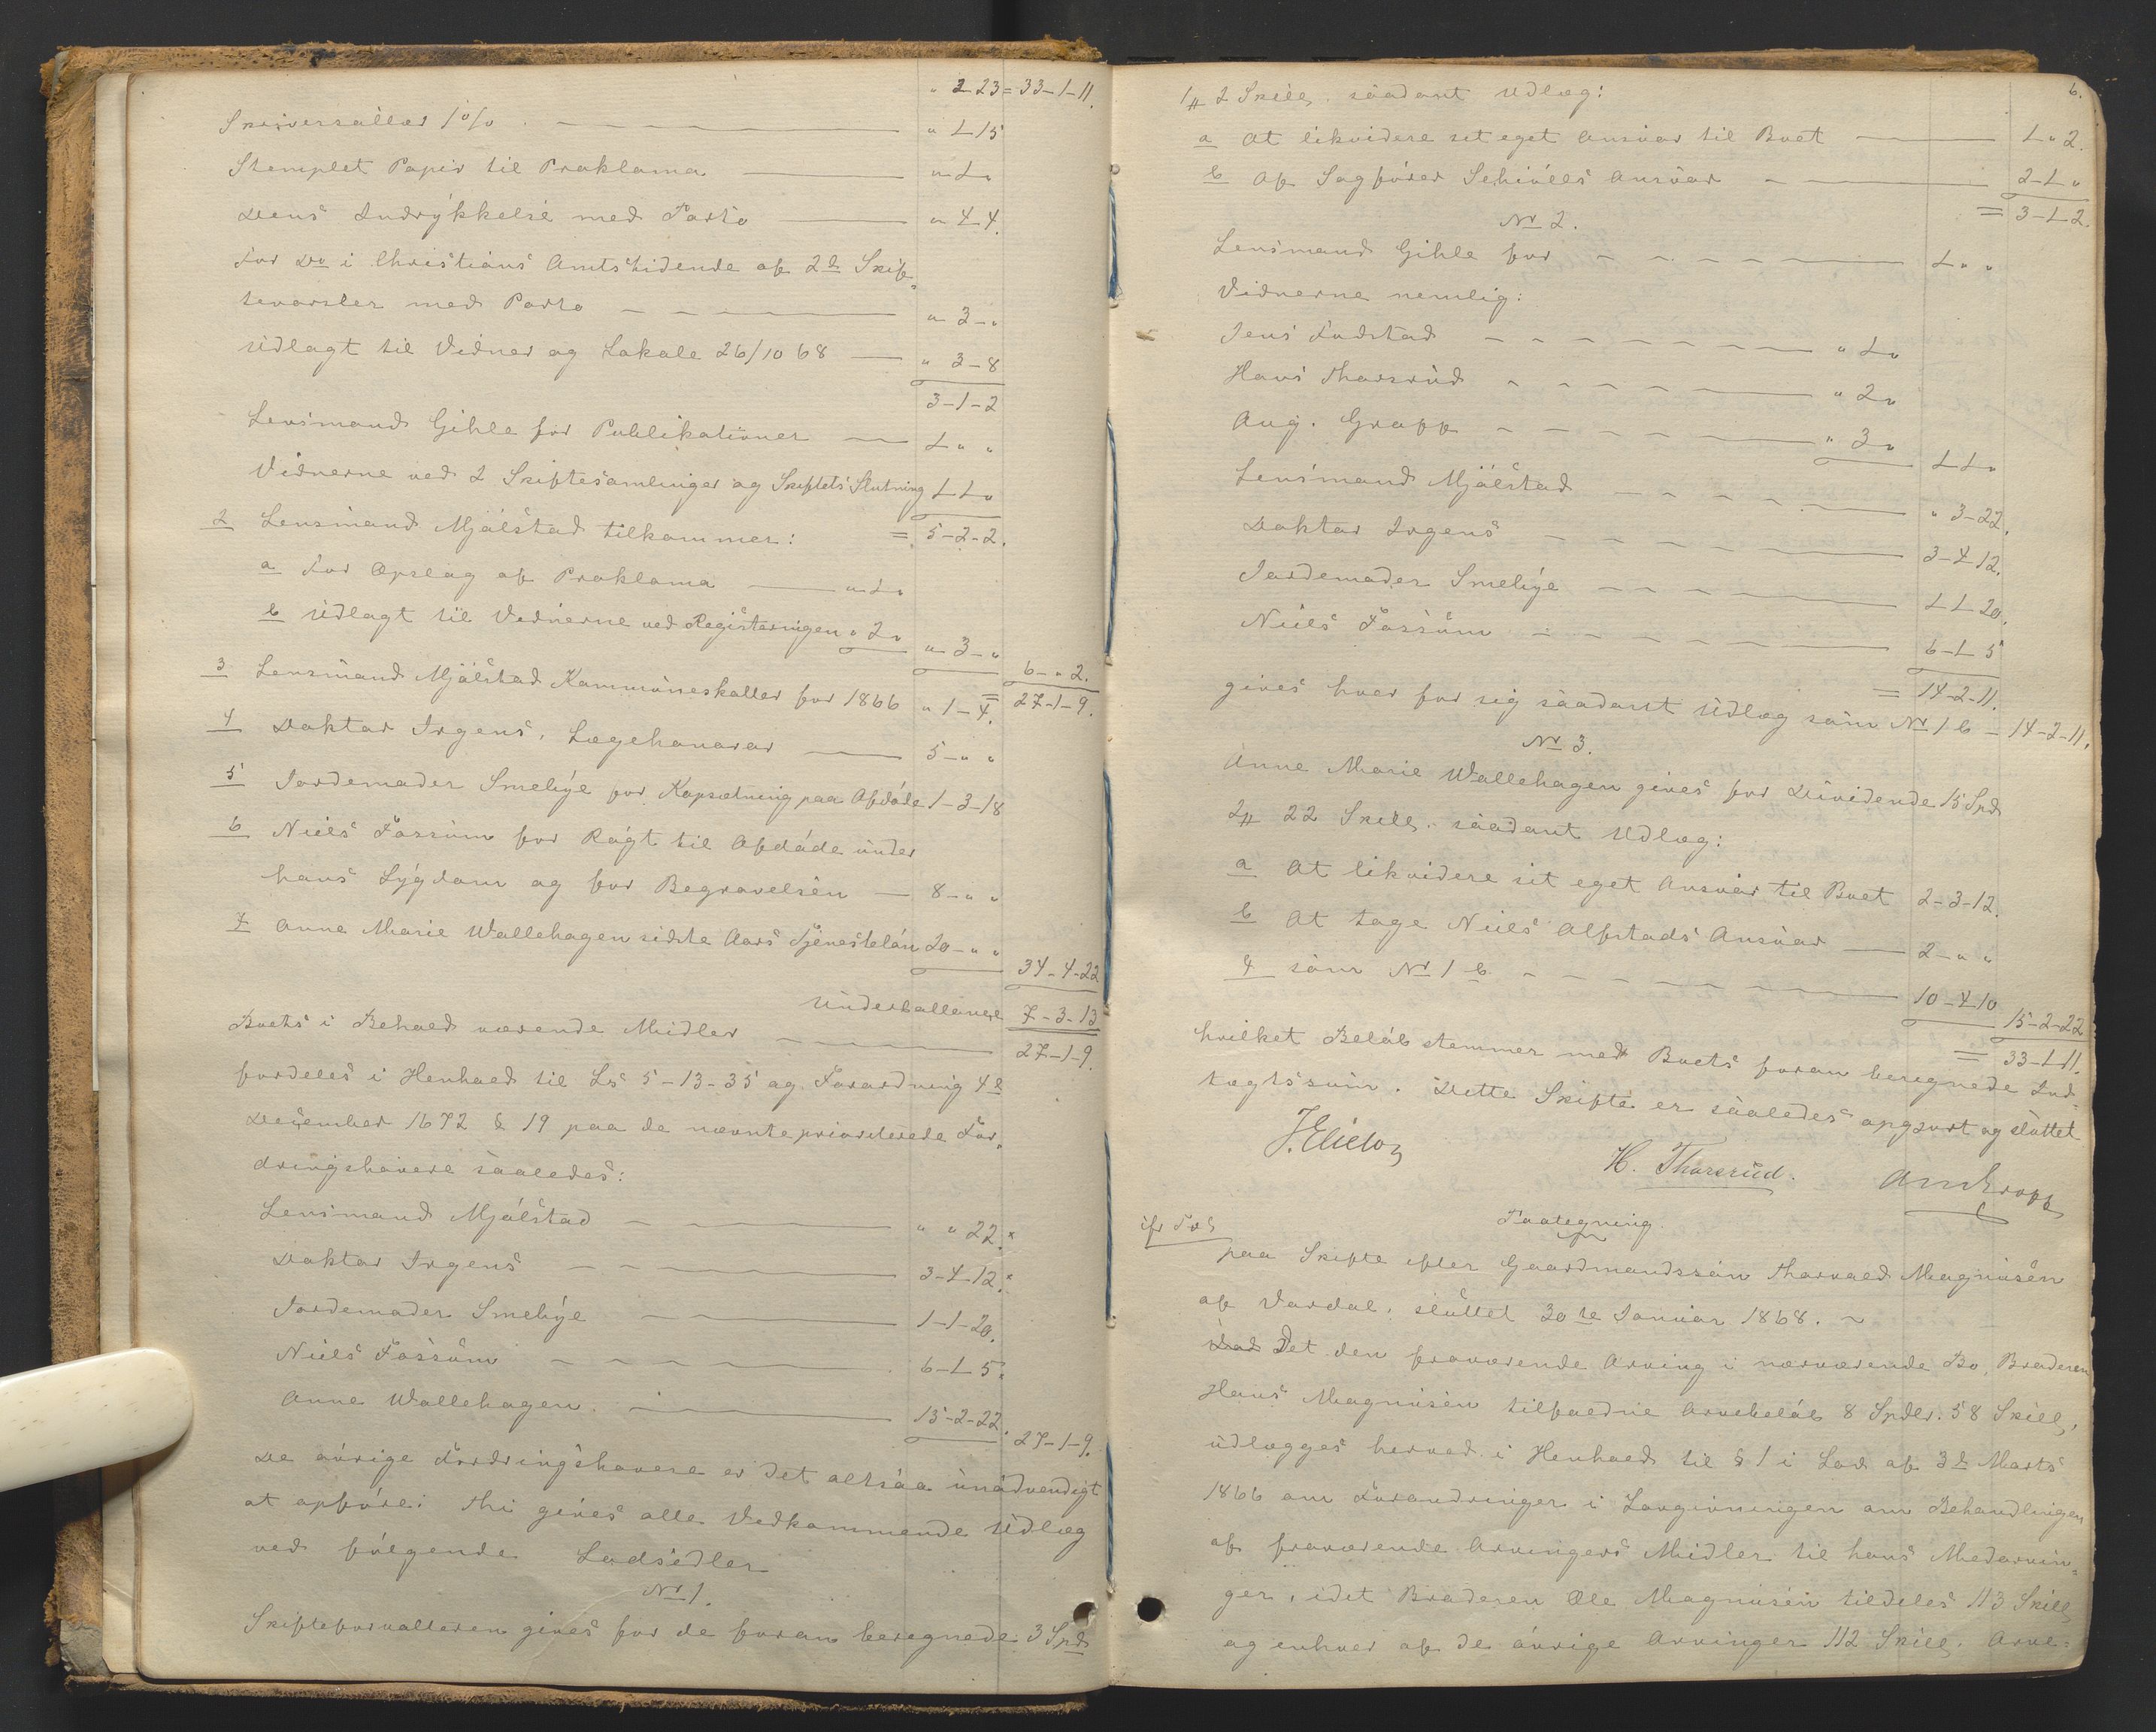 " 2-23 = 33-1-11.
Skriversallær 1 % — " 1-15
Stemplet Papir til Proklama — " 1 "
Dens Indrykkelse med Porto — " 4-4.
For Do i Christians Amtstidende af 2de Skif-
tevarsler med Porto — " 3 - "
Udlagt til Vidner og Lokale 26/10 68 — " 3-8
3-1-2
Lensmand Gihle for Publikationer — 1 " "
Vidnerne ved 2 Skiftesamlinger og Skiftets Slutning 1-1 "
= 5-2-2.
2 Lensmand Mjølstad tilkommer:
a For Opslag af Proklama — " 1 "
b Udlagt til Vidnerne ved Registeringen " 2 " " 3 - "
6 - " 2.
= 27-1-9.
3 Lensmand Mjølstad Kommuneskatter for 1866 " 1-4.
4 Doktor Irgens, Lægehonorar — 5 - " "
5 Jordemoder Smebye for Kopsætning paa Afdøde 1-3-18
6 Niels Fossum for Røgt til Afdøde under
hans Sygdom og for Begravelsen — 8 - " "
7 Anne Marie Wallehagen sidste Aars Tjenesteløn 20 - " "
34-4-22
Underballance 7-3-13
Boets i Behold værende Midler — 27-1-9.
fordeles i Henhold til Ls 5-13-35 og Forordning 4de
December 1672 § 19 paa de nævnte prioriterede For-
dringshavere saaledes:
Lensmand Mjølstad — " " 22.
Doktor Irgens — 3-4-12.
Jordemoder Smebye — 1-1-20.
Niels Fossum — 6-1-5.
Anne Wallehagen — 15-2-22. 27-1-9.
De øvrige Fordringshavere er det altsaa unødvendigt
at opføre: Thi gives alle Vedkommende Udlæg
ved følgende Lodsedler
No 1.
Skifteforvalteren gives for de foran beregnede 3 Spd
6.
1 # 2 Skill. saadant Udlæg:
a At likvidere set eget Ansvar til Boet — 1 " 2.
b Af Sagfører Schiølls Ansvar — 2-1 "
= 3-1-2.
No 2.
Lensmand Gihle for — 1 " "
Vidnerne nemlig:
Jens Fudstad — " 1 "
Hans Thorsrud — " 2 "
Aug. Gropp — " 3 " 1-1 "
Lensmand Mjølstad — " 3-22.
Doktor Irgens — 3-4-12.
Jordemoder Smebye — 1-1-20.
Niels Fossum — 6-1-5
= 14-2-11.
gives hver for sig saadant Udlæg som No 1 b — 14-2-11.
No 3.
Anne Marie Wallehagen gives for Dividende 15 Spd
2 # 22 Skill. saadant Udlæg:
a At likvidere sit eget Ansvar til Boet 2-3-12.
b At tage Niels Alfstads Ansvar — 2 - " "
4 som No 1 b — 10-4-10
15-2-22
= 33-1-11.
hvilket Beløb stemmer med Boets foran beregnede Ind-
tægtssum. Dette Skifte er saaledes opgjort og sluttet
H. Thorsrud.
Paategning
paa Skifte efter Gaardmandssøn Thorvald Magnusen
af Vardal, sluttet 30te Januar 1868.
Det den fraværende Arving i nærværende Bo, Broderen
Hans Magnusen tilfaldne Arvebeløb 8 Spdlr. 58 Skill,
udlægges herved i Henhold til § 1 i Lov af 3de Marts
1866 om Forandringer i Lovgivningen om Behandlingen
af fraværende Arvingers Midler til hans Medarvin-
ger, idet Broderen Ole Magnusen tildeles 113 Skill
og enhver af de øvrige Arvinger 112 Skill. Arve-